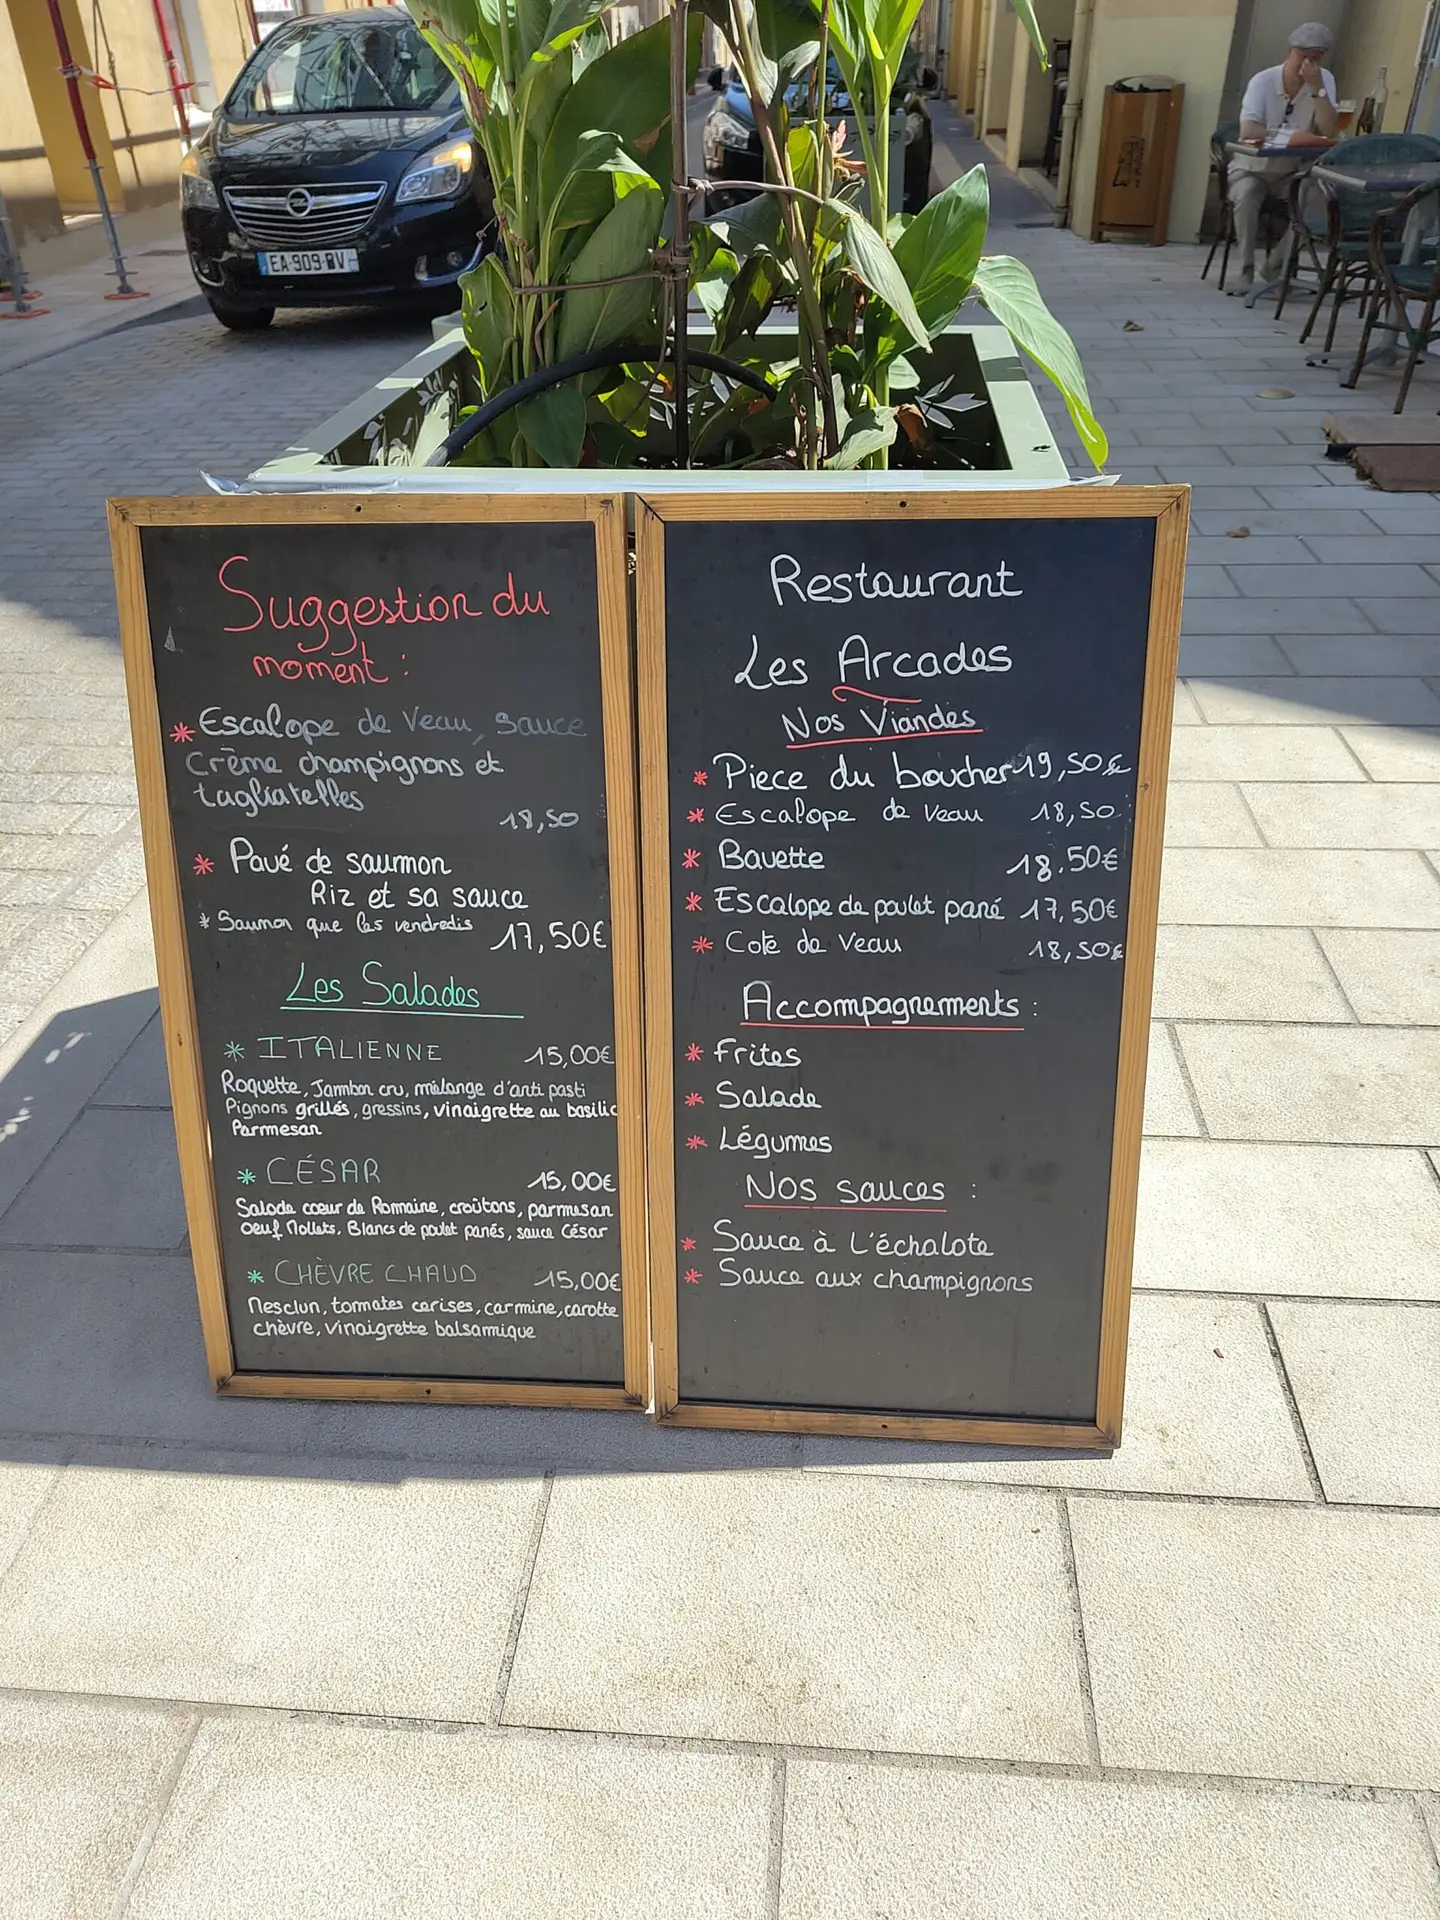 EA-909-BV
Suggestion du
moment :
* Escalope de Veau, sauce
Crème champignons et
tagliatelles
18,50
* Pavé de saumon
Riz et sa sauce
* Saumon que les vendredis
17,50€
Les Salades
* ITALIENNE 15,00€
Roquette, Jambon cru, mélange d'anti pasti
Pignons grillés, gressins, vinaigrette au basilic
Parmesan
* CÉSAR 15,00€
Salade coeur de Romaine, croûtons, parmesan
Oeuf Mollets, Blancs de poulet panés, sauce César
* CHÈVRE CHAUD 15,00€
Mesclun, tomates cerises, carmine, carotte
chèvre, vinaigrette balsamique
Restaurant
Les Arcades
Nos Viandes
* Piece du boucher 19,50€
* Escalope de Veau 18,50
* Bavette 18.50€
* Escalope de poulet pané 17,50€
* Cote de Veau 18,50€
Accompagnements :
* Frites
* Salade
* Légumes
Nos sauces :
* Sauce à L'échalote
* Sauce aux champignons